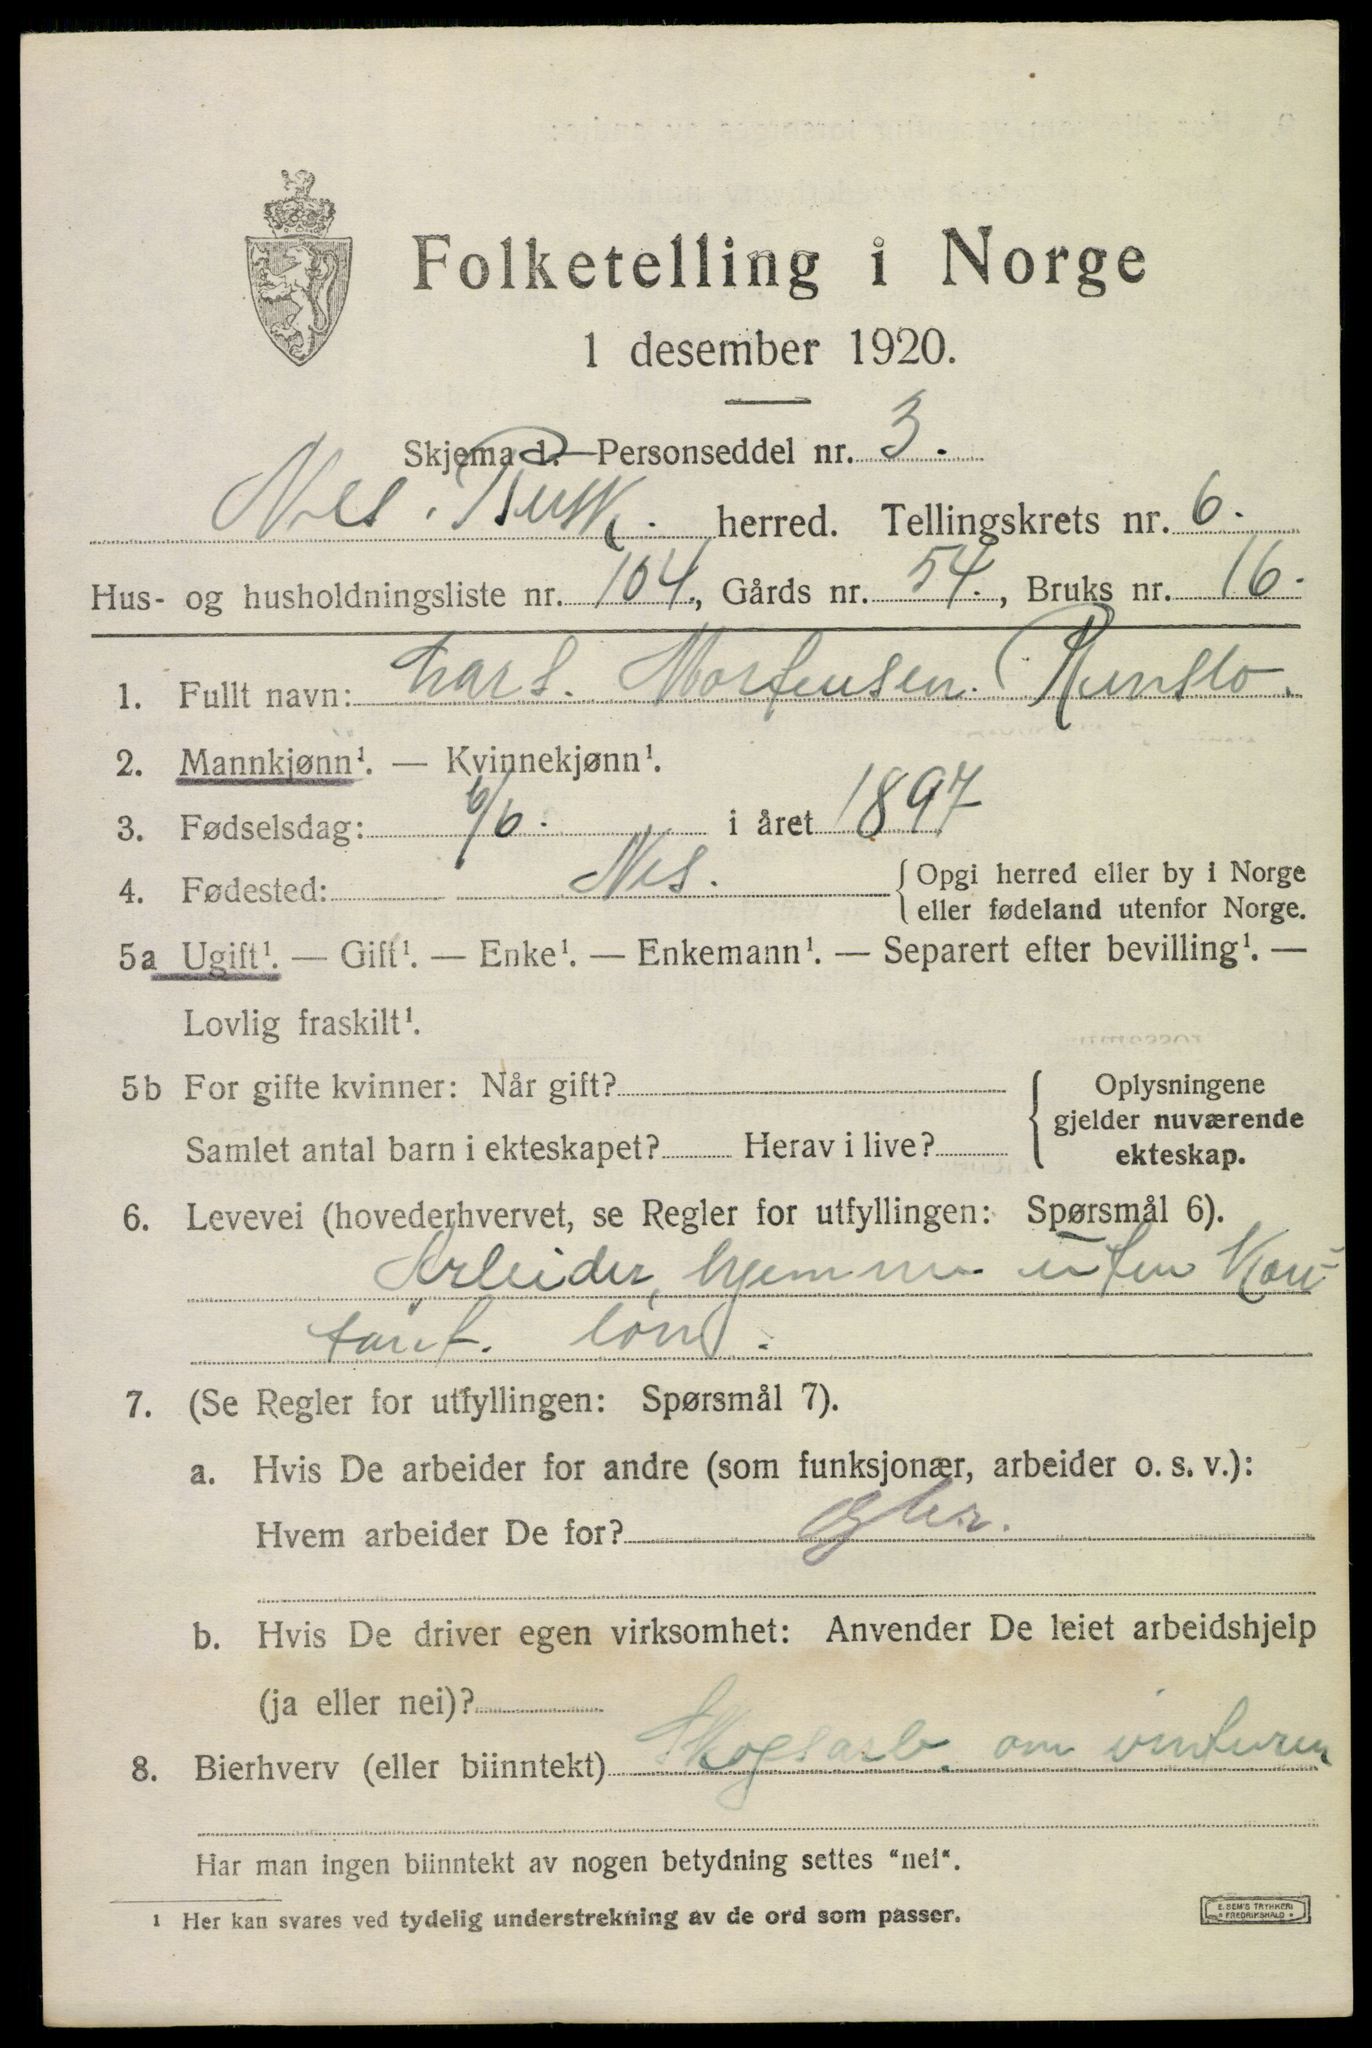 Folketelling i Norge
1 desember 1920.
Skjema d. Personseddel nr. 3.
Nes. Busk. herred. Tellingskrets nr. 6.
Hus- og husholdningsliste nr. 104., Gårds nr. 54., Bruks nr. 16.
1. Fullt navn: Lars. Mortensen. Runslo.
2. Mannkjønn¹. — Kvinnekjønn¹.
3. Fødselsdag: 6/6. i året 1897
4. Fødested: Nes. { Opgi herred eller by i Norge
eller fødeland utenfor Norge.
5a Ugift¹. — Gift¹. — Enke¹. — Enkemann¹. — Separert efter bevilling¹. —
Lovlig fraskilt¹.
5b For gifte kvinner: Når gift? { Oplysningene
gjelder nuværende
Samlet antal barn i ekteskapet? Herav i live? ekteskap.
6. Levevei (hovederhvervet, se Regler for utfyllingen: Spørsmål 6).
Arbeider, hjemme uten Kon-
tant. lønn.
7. (Se Regler for utfyllingen: Spørsmål 7).
a. Hvis De arbeider for andre (som funksjonær, arbeider o. s. v.):
Hvem arbeider De for?
b. Hvis De driver egen virksomhet: Anvender De leiet arbeidshjelp
(ja eller nei)?
8. Bierhverv (eller biinntekt) Skogsarb. om vinteren
Har man ingen biinntekt av nogen betydning settes "nei".
¹ Her kan svares ved tydelig understrekning av de ord som passer.
E. SEM'S TRYKKERI
FREDRIKSHALD